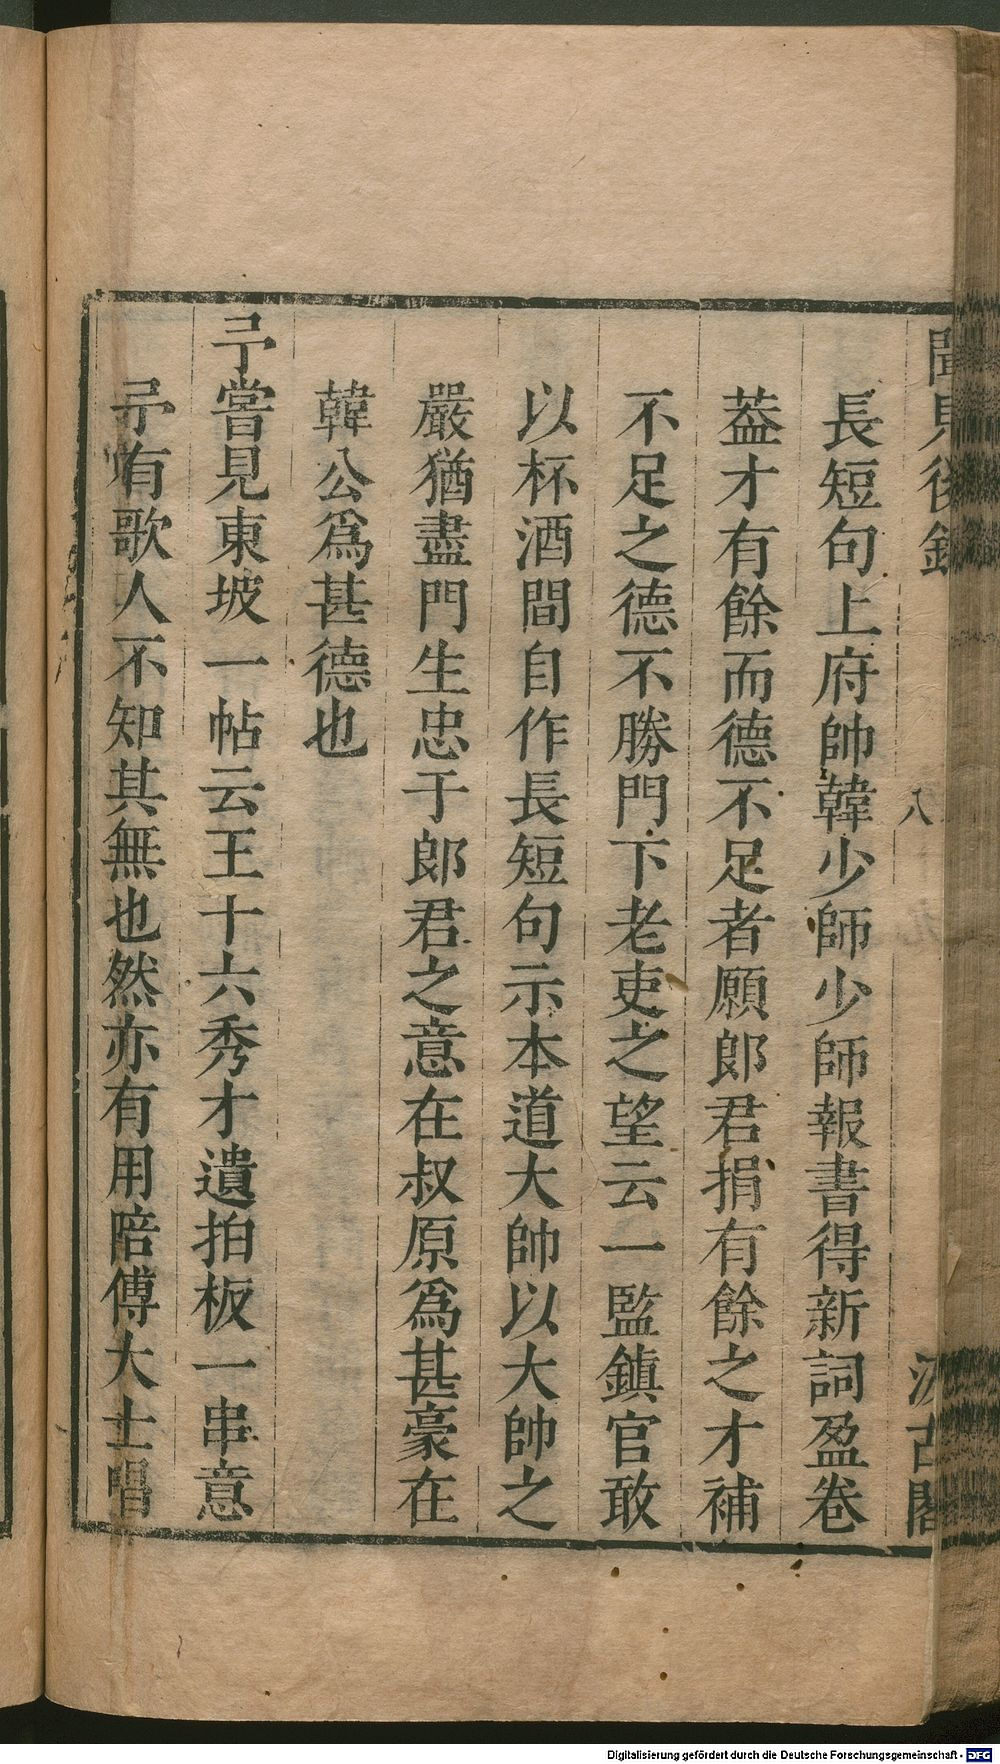 聞見後錄
八
汲古閣
長短句上府帥韓少師少師報書得新詞盈卷
葢才有餘而德不足者願郞君捐有餘之才補
不足之德不勝門下老吏之望云一監鎮官敢
以杯酒間自作長短句示本道大帥以大帥之
嚴猶盡門生忠于郞君之意在叔原爲甚豪在
韓公爲甚德也
予嘗見東坡一帖云王十六秀才遺拍板一串意
予有歌人不知其無也然亦有用陪傅大士唱
Digitalisierung gefördert durch die Deutsche Forschungsgemeinschaft - DFG